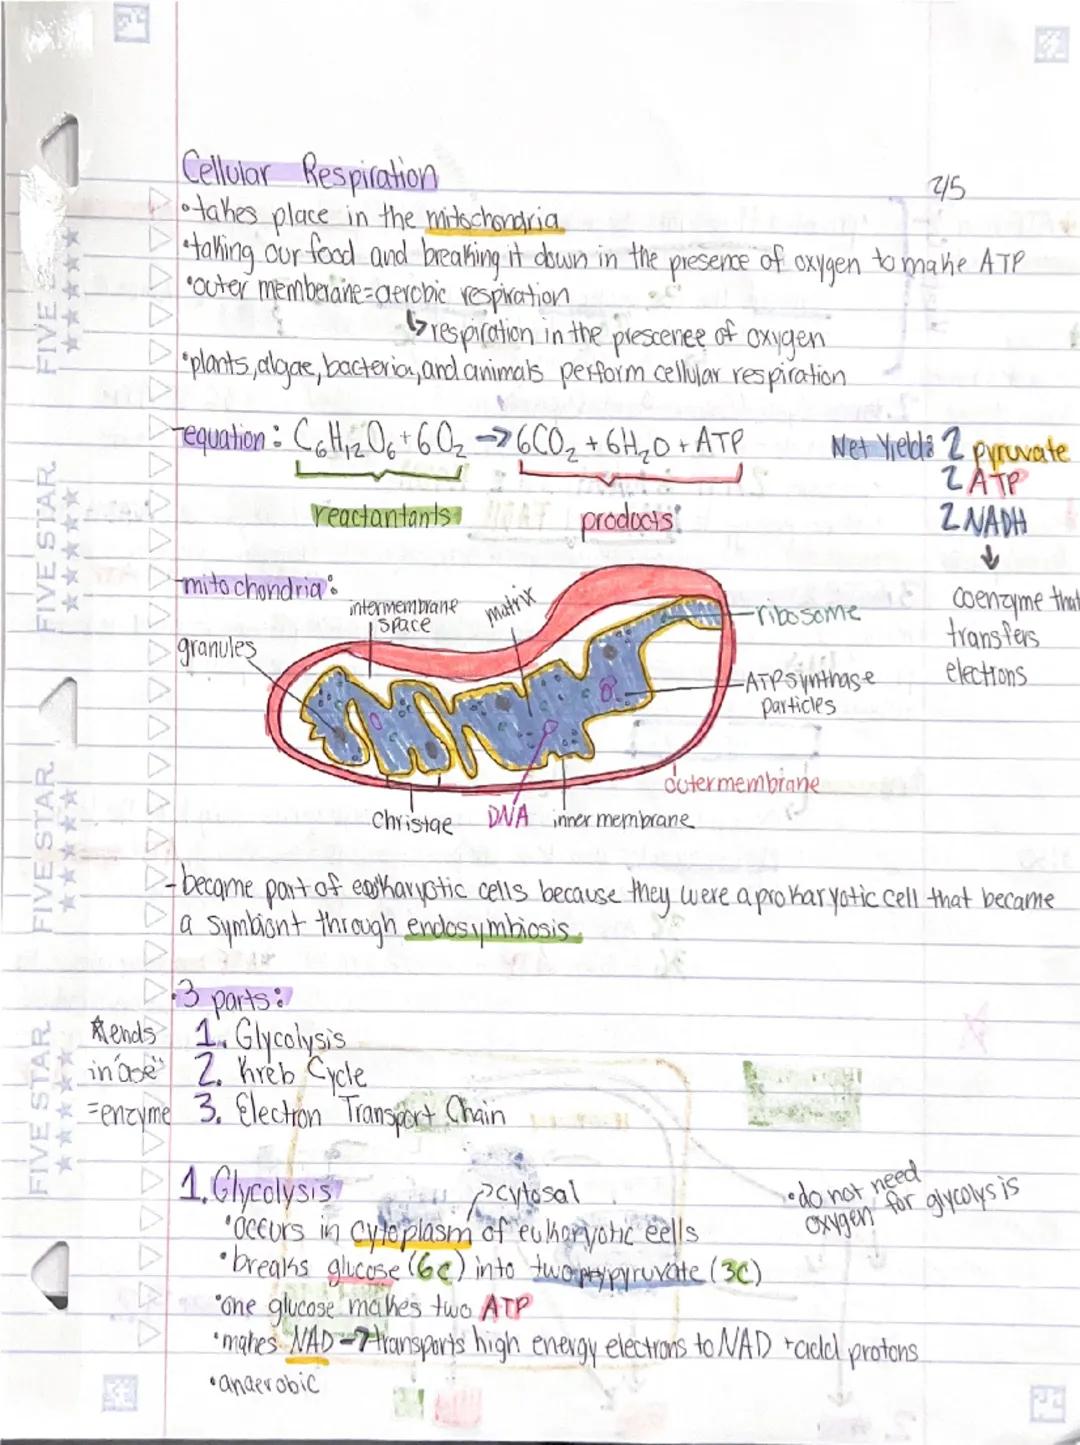 Cellular Respiration
2/5
•takes place in the mitochondria
•taking our food and breaking it down in the presence of oxygen to make ATP
•outer memberane=aerobic respiration
↳respiration in the prescenee of oxygen
•plants, algae, bacteria, and animals perform cellular respiration
equation: C6H12O6+6O2 →6CO2+6H2O+ATP
reactantants
products:
Net Yield: 2 pyruvate
2 ATP
2 NADH
↓
coenzyme that
transfers
electrons
mitochondria:
intermembrane
space
matrix
granules
ribosome
ATP synthase
particles
outermembrane
Christae
DNA
inner membrane
-became part of eukaryotic cells because they were a prokaryotic cell that became
a symbiont through endosymbiosis.
•3 parts:
1. Glycolysis
2. Kreb Cycle
3. Electron Transport Chain
☆ends
in "ase"
=enzyme
1. Glycolysis
→cytosal
•occurs in cytoplasm of eukaryotic cells
•breaks glucose (6c) into two pypyruvate (3C)
•one glucose makes two ATP
•makes NAD→transports high energy electrons to NAD +add protons
•anaerobic
•do not need
oxygen for glycolysis
FIVE STAR
FIVE STAR
FIVE STAR
FIVE STAR